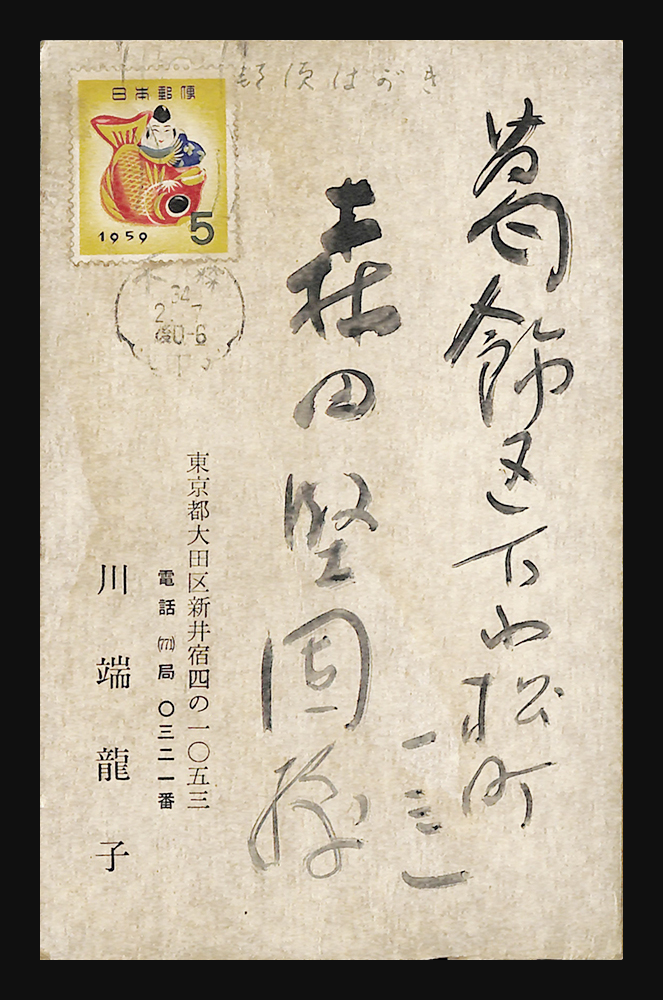 郵便はがき
日本郵便
1959 5
大森
34
2. 7
後0-6
葛飾区下小松町
一三一
森田堅固様
東京都大田区新井宿四の一〇五三
電話(771)局〇三二一番
川端龍子